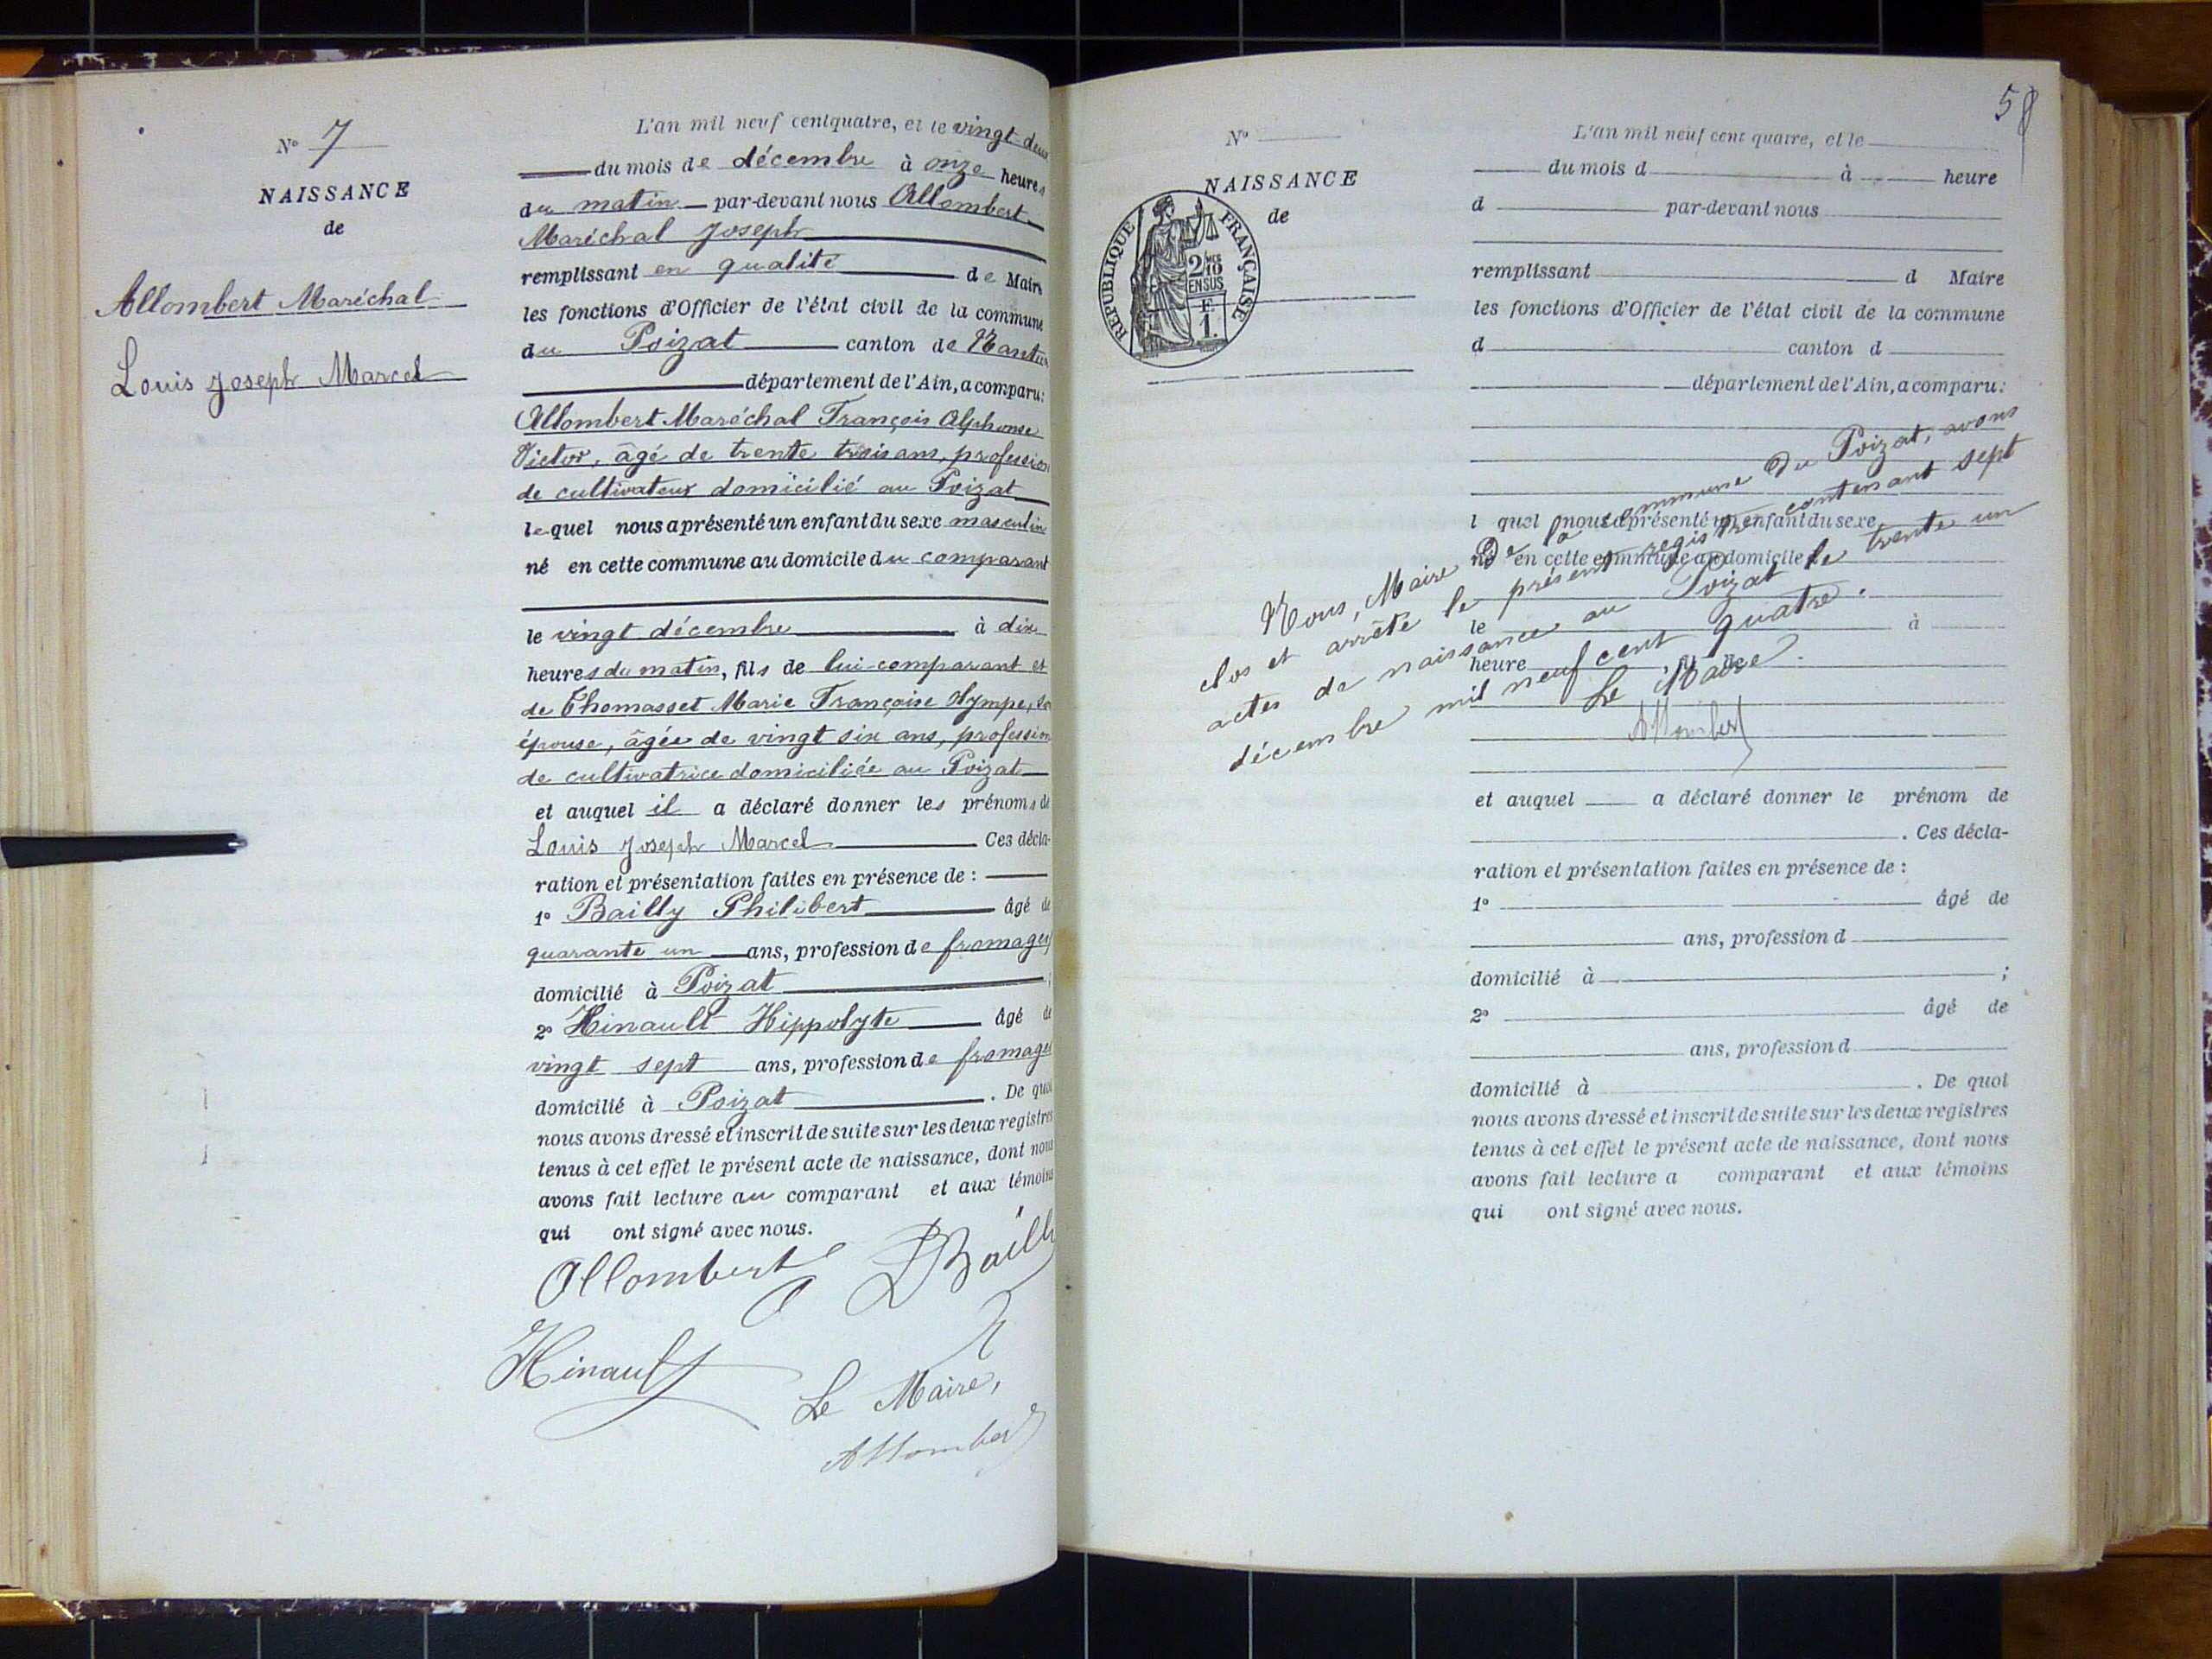 N° 7
NAISSANCE
de
Allombert Maréchal
Louis Joseph Marcel
L'an mil neuf cent quatre, et le vingt-deux
du mois de décembre à onze heures
du matin par-devant nous Allombert
Maréchal Joseph
remplissant en qualité de Maire
les fonctions d'Officier de l'état civil de la commune
du Poizat canton de Nantua
département de l'Ain, a comparu:
Allombert Maréchal François Alphonse
Victor, âgé de trente trois ans, profession
de cultivateur domicilié au Poizat
lequel nous a présenté un enfant du sexe masculin
né en cette commune au domicile du comparant
le vingt décembre à dix
heures du matin, fils de lui-comparant et
de Thomasset Marie Françoise Nympe, son
épouse, âgée de vingt six ans, profession
de cultivatrice domiciliée au Poizat
et auquel il a déclaré donner les prénoms de
Louis Joseph Marcel Ces décla-
ration et présentation faites en présence de :
1° Bailly Philibert âgé de
quarante un ans, profession de fromager
domicilié à Poizat ;
2° Hinault Hippolyte âgé de
vingt sept ans, profession de fromager
domicilié à Poizat . De quoi
nous avons dressé et inscrit de suite sur les deux registres
tenus à cet effet le présent acte de naissance, dont nous
avons fait lecture au comparant et aux témoins
qui ont signé avec nous.
Allombert Bailly
Hinault
Le Maire,
Allombert
58
N°
NAISSANCE
de
RÉPUBLIQUE FRANÇAISE
2/10 EN SUS
F.
1.
L'an mil neuf cent quatre, et le
du mois d à heure
d par-devant nous
remplissant d Maire
les fonctions d'Officier de l'état civil de la commune
d canton d
département de l'Ain, a comparu:
l quel nous a présenté un enfant du sexe
né en cette commune au domicile d
le à
heure , fil de
Nous, Maire de la commune du Poizat, avons
clos et arrêté le présent registre contenant sept
actes de naissance au Poizat le trente un
décembre mil neuf cent quatre.
Le Maire.
Allombert
et auquel a déclaré donner le prénom de
. Ces décla-
ration et présentation faites en présence de :
1° âgé de
ans, profession d
domicilié à ;
2° âgé de
ans, profession d
domicilié à . De quoi
nous avons dressé et inscrit de suite sur les deux registres
tenus à cet effet le présent acte de naissance, dont nous
avons fait lecture a comparant et aux témoins
qui ont signé avec nous.